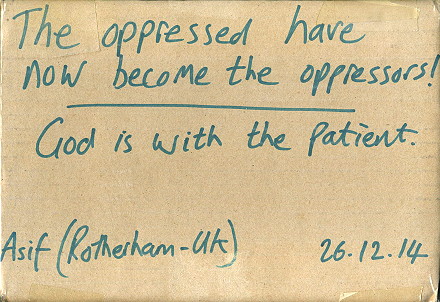 The oppressed have
now become the oppressors!
God is with the patient.
Asif (Rotherham-UK) 26.12.14